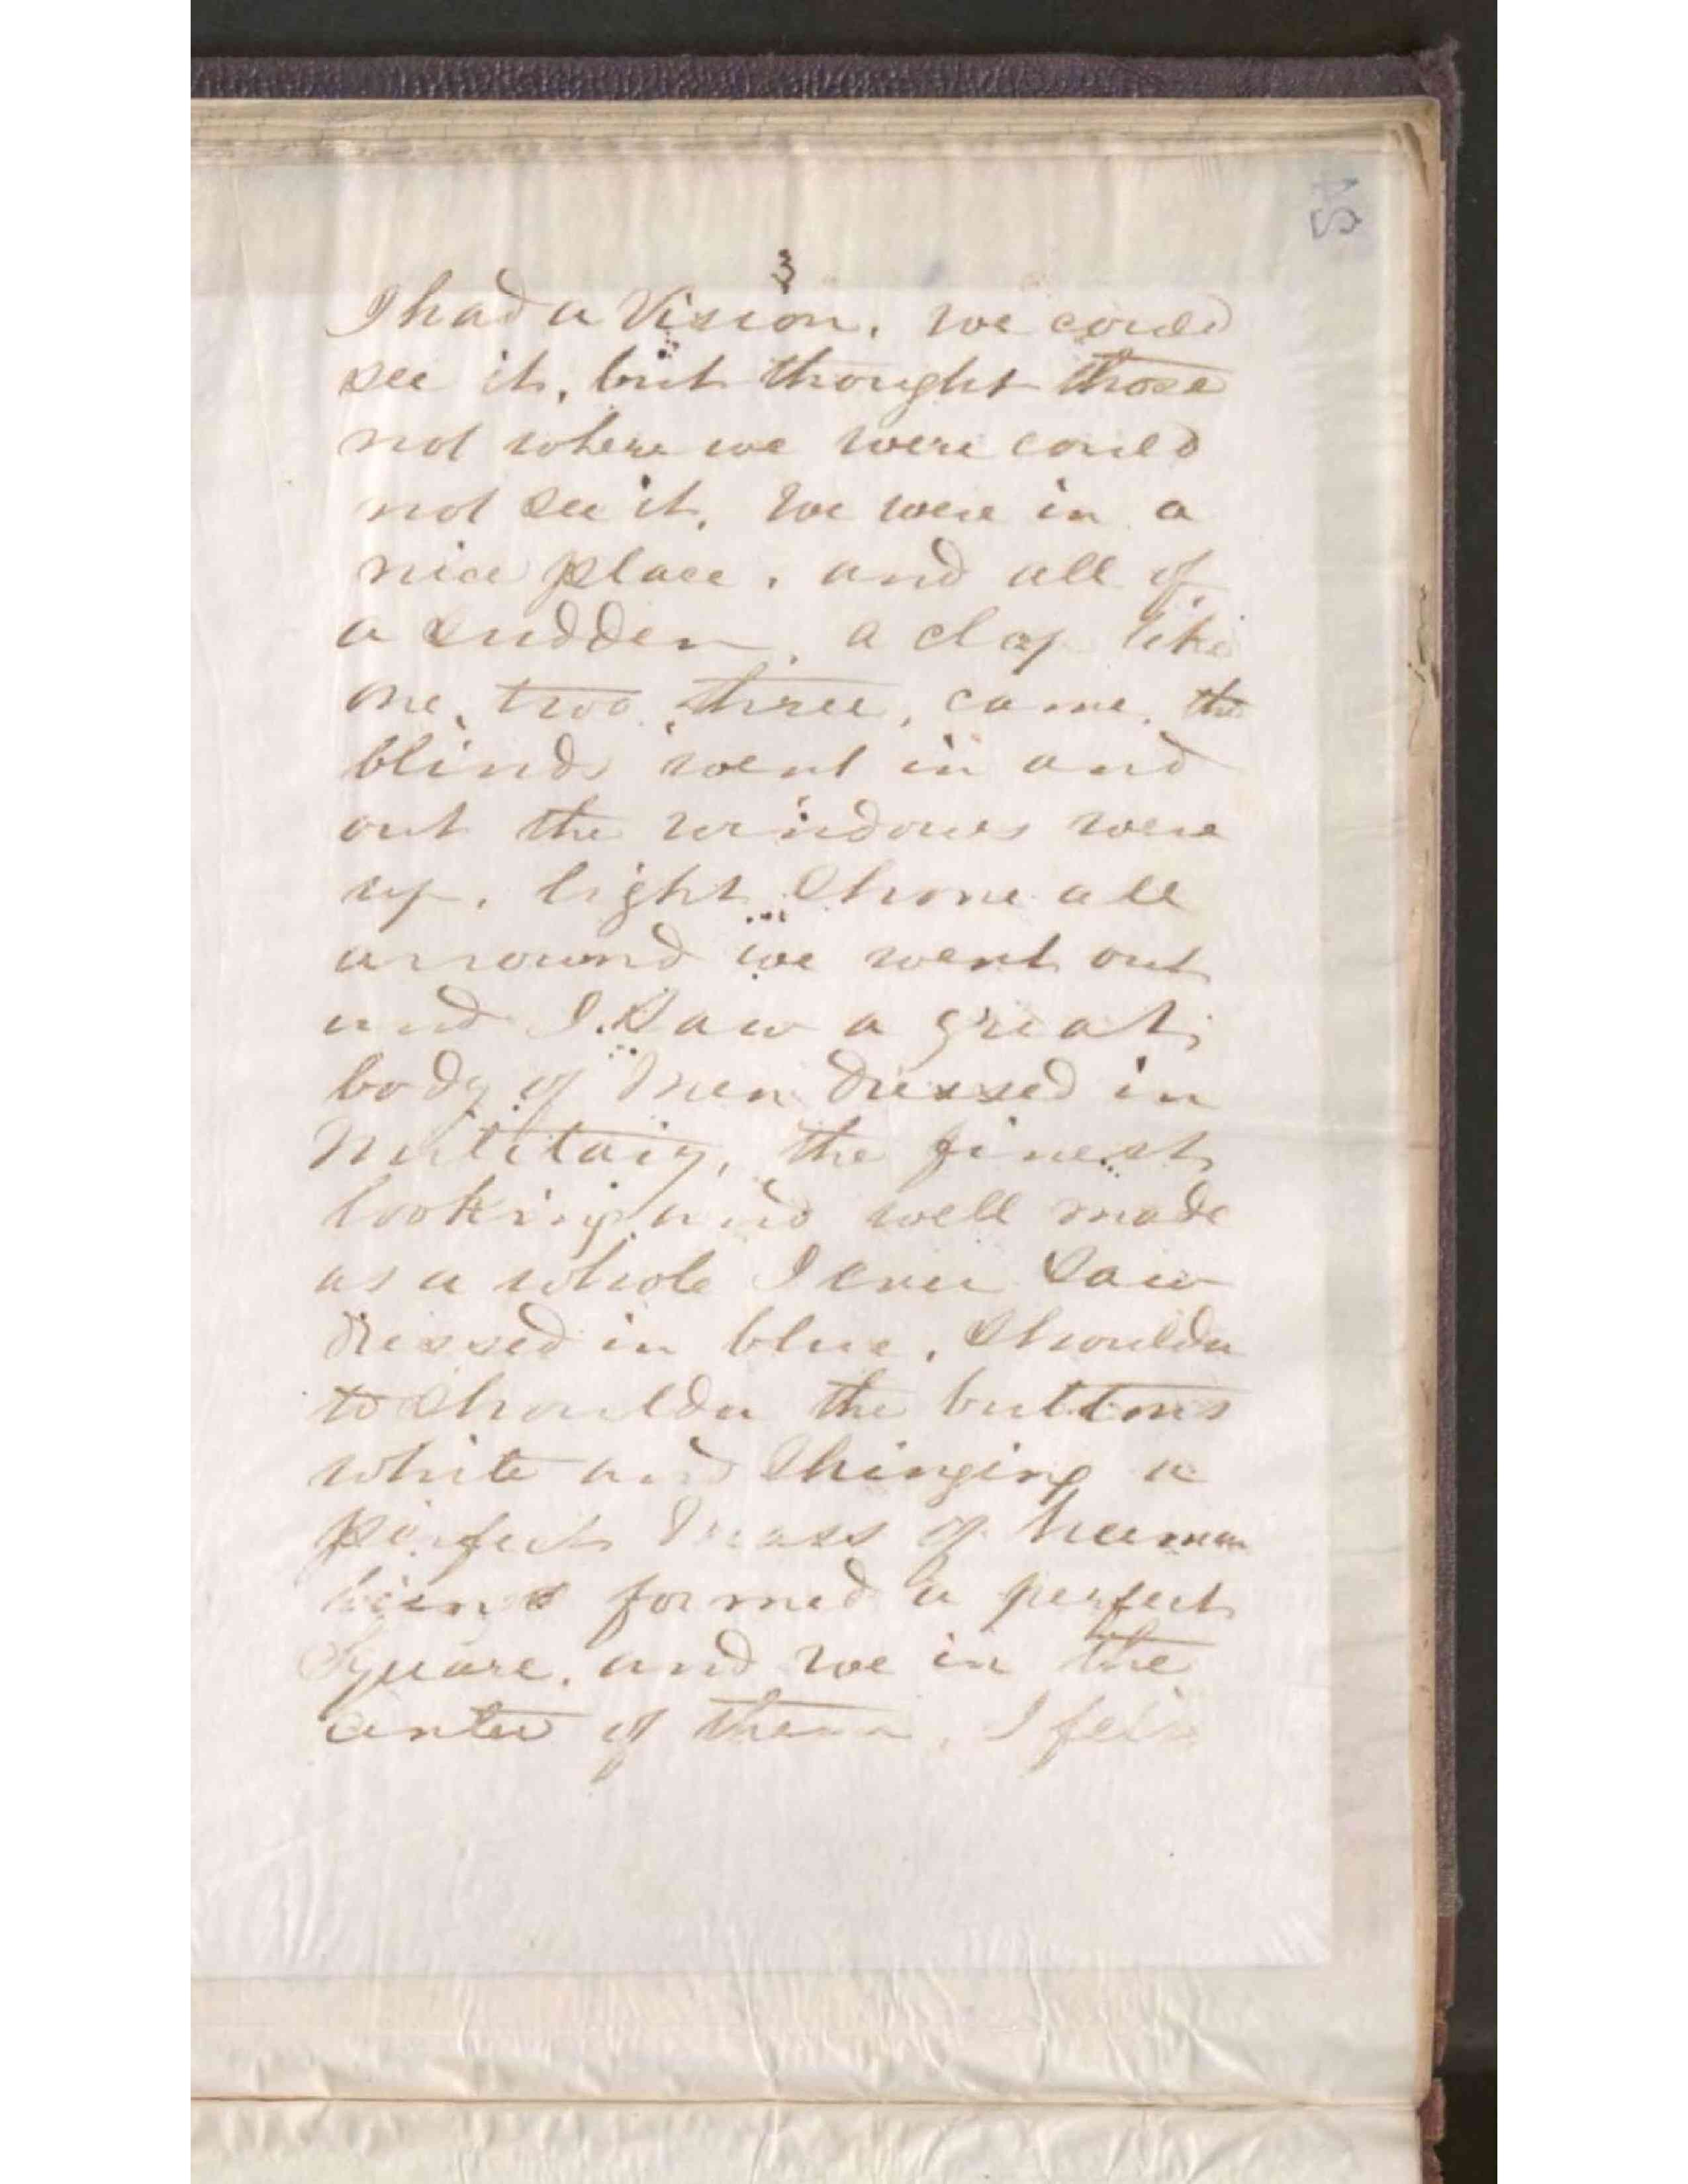 54
3
I had a Vision. We could
see it, but thought those
not where we were could
not see it. We were in a
nice place, and all of
a sudden, a clap like
one, two, three, came, the
blinds went in and
out the windows were
up, light Shone all
arround we went out
and I Saw a great
body of Men dressed in
Millitary, the finest
looking and well made
as a whole I ever Saw
dressed in blue, Shoulder
to Shoulder the buttons
white and Shinging a
perfect Mass of human
formed a perfect
Square, and we in the
center of them, I felt